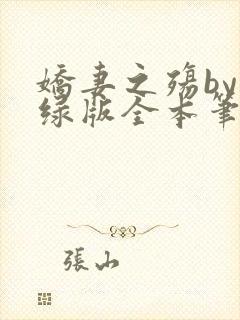 嬌妻之殤by
绿版全本筆
張山